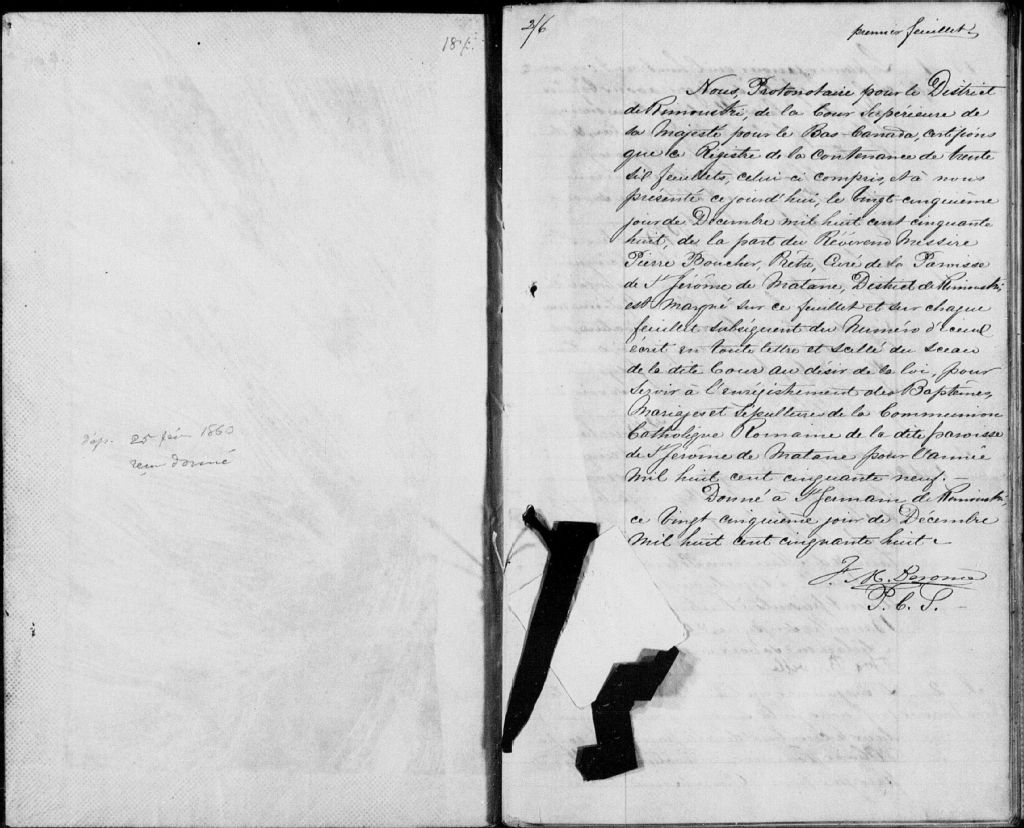 18
dép. 25 fév 1860
reçu donné
2/6
premier feuillet
Nous, Protonotaire pour le District
de Rimouski, de la Cour Supérieure de
sa Majesté pour le Bas-Canada, certifions
que ce Régistre de la contenance de trente
six feuillets, celui-ci compris, et à nous
présenté ce jourd'hui, le Vingt-cinquième
jour de Décembre mil huit cent cinquante
huit, de la part du Révérend Messire
Pierre Boucher, Prêtre, Curé de la Paroisse
de St Jérôme de Matane, District de Rimouski,
est Marqué sur ce feuillet et sur chaque
feuillet subséquent du Numéro d'iceux
écrit en toute lettre et scellé du sceau
de la dite Cour au désir de la loi, pour
servir à l'enrégistrement des Baptêmes,
Mariages et Sépultures de la Communion
Catholique Romaine de la dite paroisse
de St Jérôme de Matane pour l'année
Mil huit cent cinquante neuf. –
Donné à St Germain de Rimouski,
ce Vingt cinquième jour de Décembre
Mil huit cent cinquante huit
J. M. Derome
P. C. S.